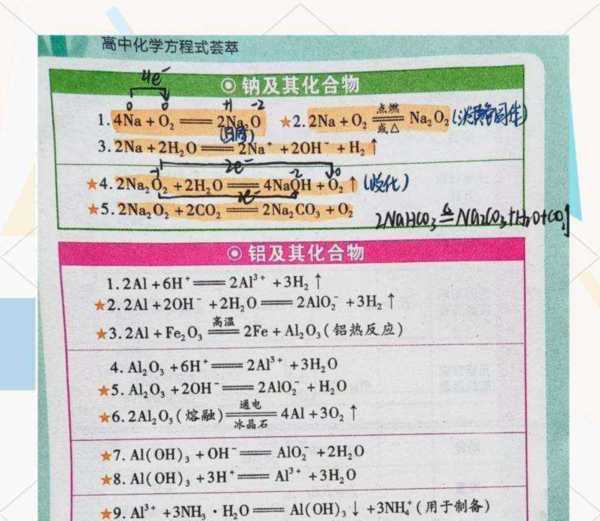 高中化学方程式荟萃
4e⁻
⊙ 钠及其化合物
0 0 +1 -2
1.4Na+O₂═══2Na₂O ★2.2Na+O₂ 点燃═══或△ Na₂O₂ (淡黄色固体)
(白色)
3.2Na+2H₂O═══2Na⁺+2OH⁻+H₂↑
2e⁻
-1 -2 0
★4.2Na₂O₂+2H₂O═══4NaOH+O₂↑
★5.2Na₂O₂+2CO₂═══2Na₂CO₃+O₂
2NaHCO₃ △═══ Na₂CO₃+H₂O+CO₂↑
⊙ 铝及其化合物
1.2Al+6H⁺═══2Al³⁺+3H₂↑
★2.2Al+2OH⁻+2H₂O═══2AlO₂⁻+3H₂↑
★3.2Al+Fe₂O₃ 高温═══ 2Fe+Al₂O₃(铝热反应)
4.Al₂O₃+6H⁺═══2Al³⁺+3H₂O
★5.Al₂O₃+2OH⁻═══2AlO₂⁻+H₂O
★6.2Al₂O₃(熔融) 通电═══冰晶石 4Al+3O₂↑
★7.Al(OH)₃+OH⁻═══AlO₂⁻+2H₂O
★8.Al(OH)₃+3H⁺═══Al³⁺+3H₂O
★9.Al³⁺+3NH₃·H₂O═══Al(OH)₃↓+3NH₄⁺(用于制备)